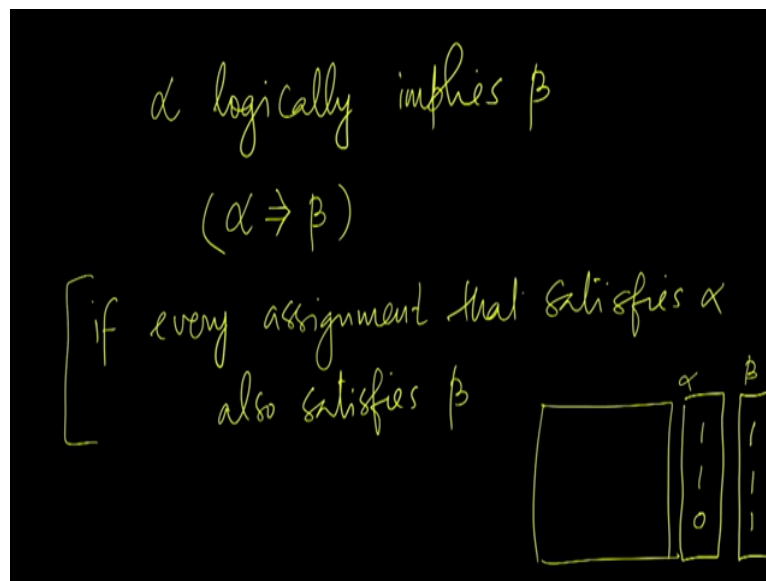 α logically implies β
(α ⇒ β)
if every assignment that satisfies α
also satisfies β
α β
1 1
1 1
0 1